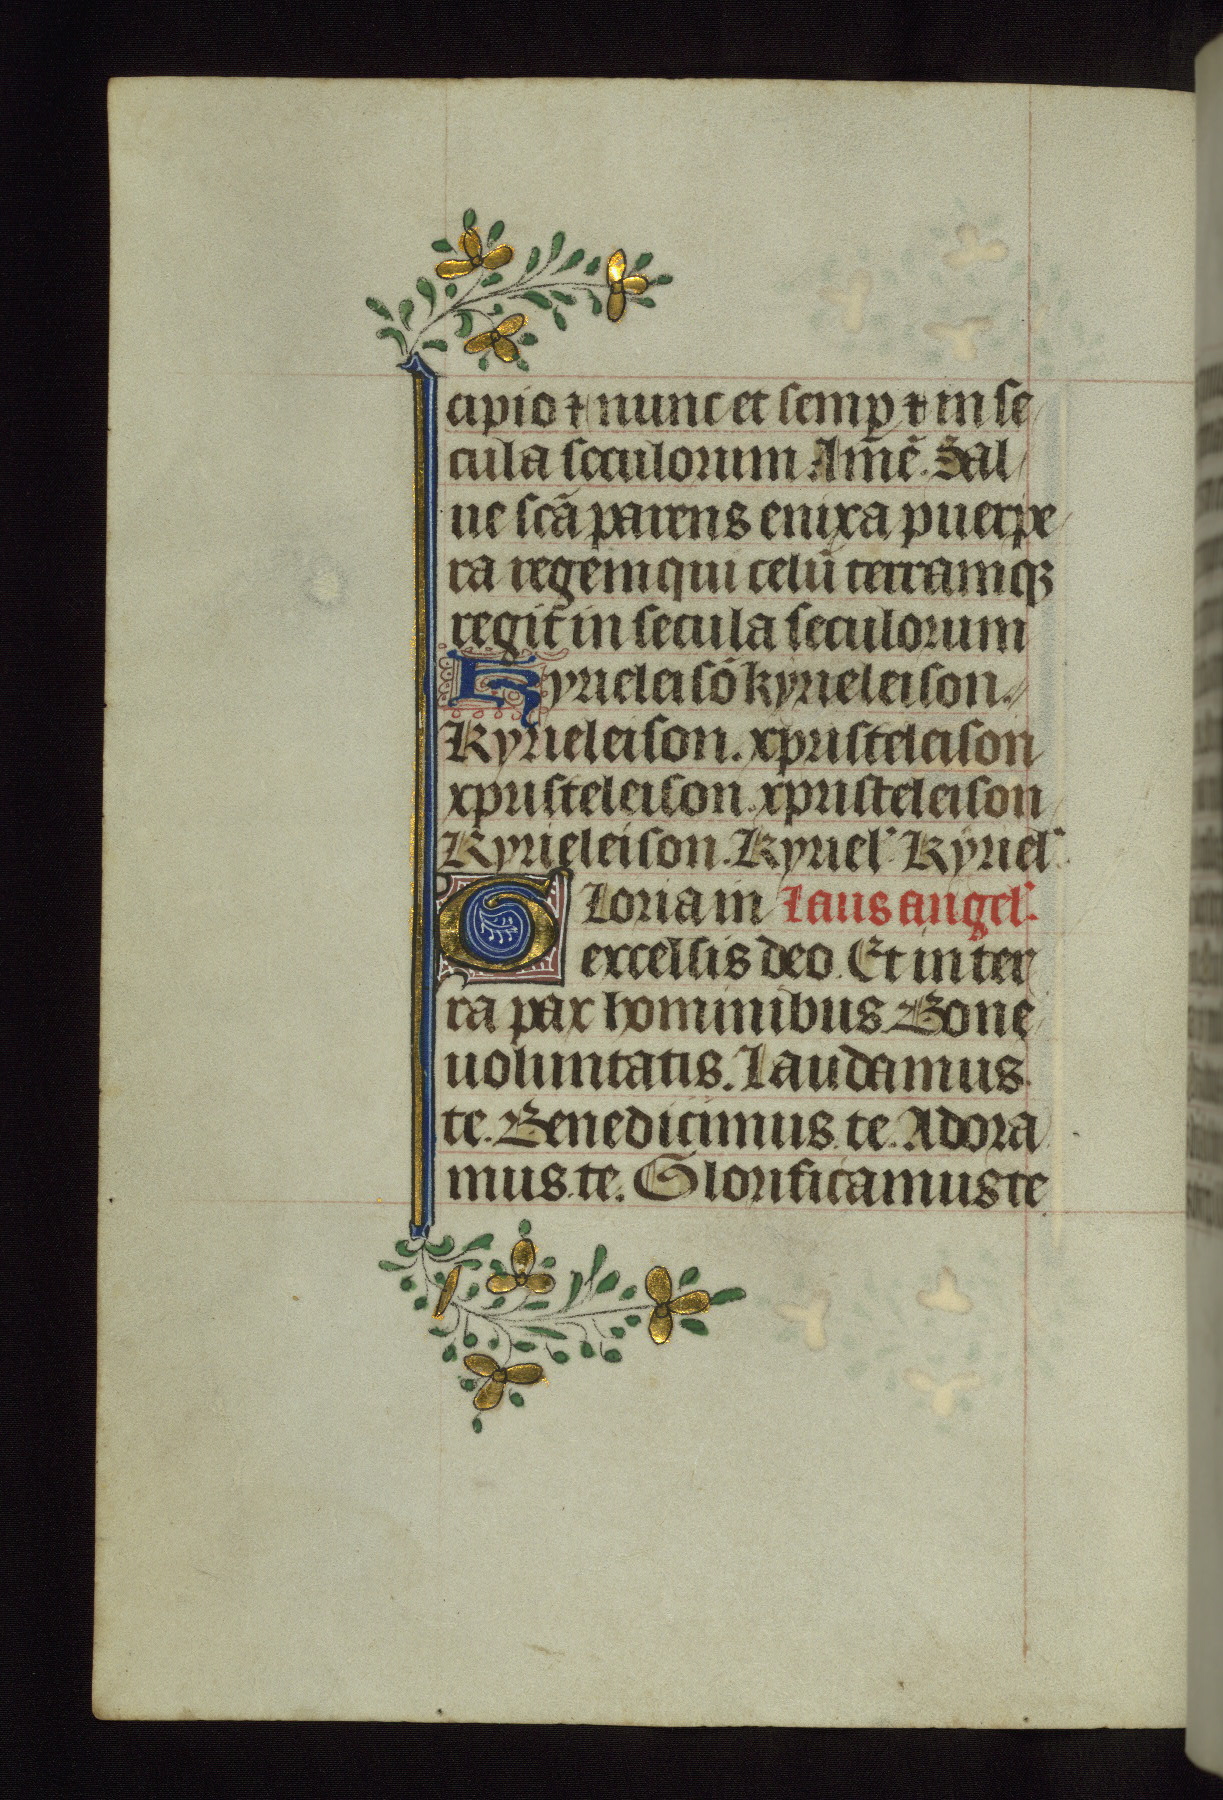 cipio ⁊ nunc et semp ⁊ in se
cula seculorum Amē. Sal
ue scā parens enixa puerpe
ra regem qui celū terramqꝫ
regit in secula seculorum
Kyrieleisō kyrieleison.
Kyrieleison. xpristeleison
xpristeleison. xpristeleison
Kyrieleison. Kyriel' Kyriel'
Gloria in Laus angel'
excelsis deo. Et in ter
ra pax hominibus Bone
uoluntatis. Laudamus
te. Benedicimus te. Adora
mus te. Glorificamus te